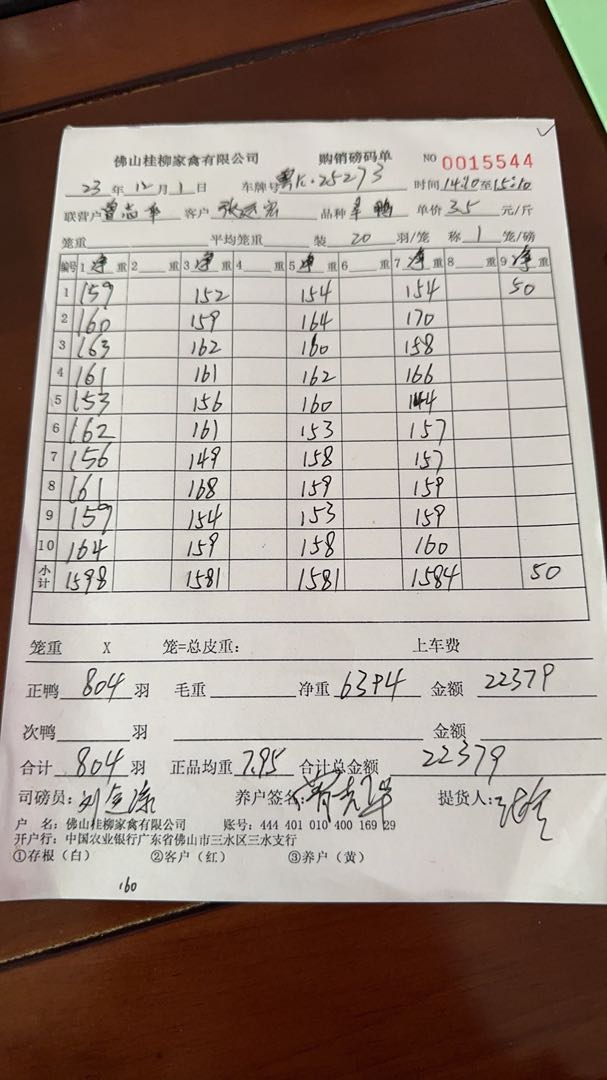 佛山桂柳家禽有限公司 购销磅码单 NO 0015544
23 年 12 月 1 日 车牌号 粤K·25273 时间 14:10 至 15:10
联营户 曾志华 客户 品种 鸭 单价 3.5 元/斤
笼重 平均笼重 装 20 羽/笼 称 1 笼/磅
编号 1 净 重 2 重 3 净 重 4 重 5 净 重 6 重 7 净 重 8 重 9 净 重
1 159 152 154 154 50
2 160 159 164 170
3 163 162 160 158
4 161 161 162 166
5 153 156 160 144
6 162 161 153 157
7 156 149 158 157
8 161 168 159 159
9 159 154 153 159
10 164 159 158 160
小计 1598 1581 1581 1584 50
笼重 X 笼=总皮重: 上车费
正鸭 804 羽 毛重 净重 6394 金额 22379
次鸭 羽 金额
合计 804 羽 正品均重 7.95 合计总金额 22379
司磅员: 养户签名: 提货人:
户 名: 佛山桂柳家禽有限公司 账号: 444 401 010 400 169 29
开户行: 中国农业银行广东省佛山市三水区三水支行
①存根(白) ②客户(红) ③养户(黄)
160